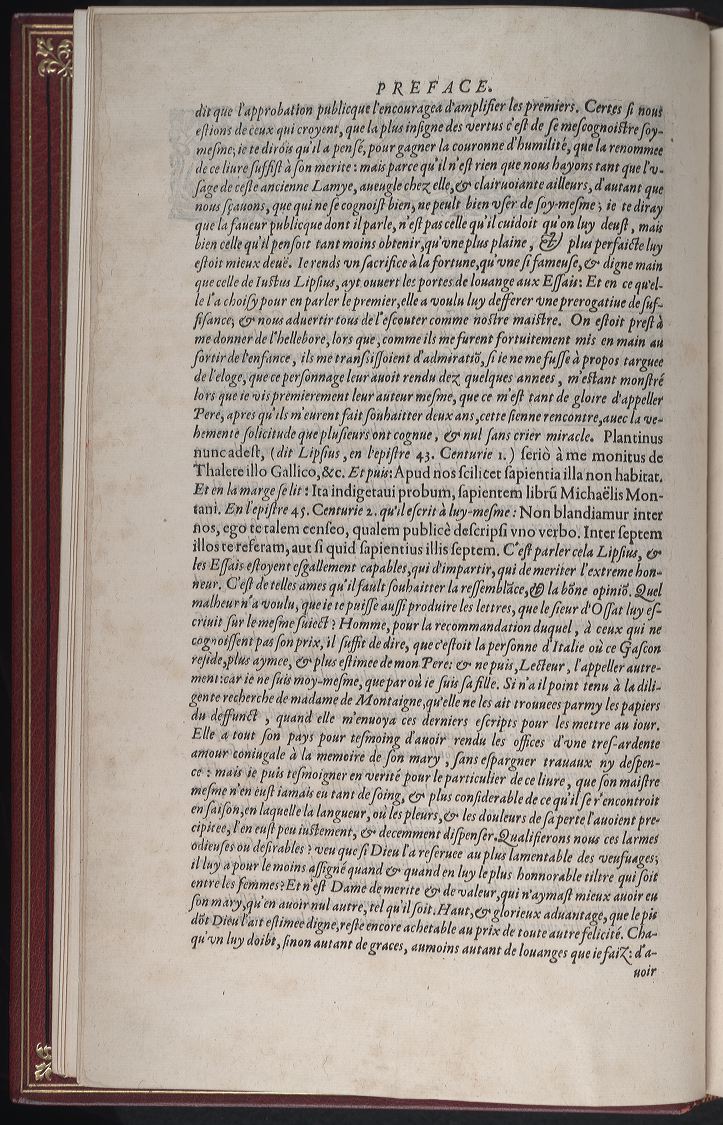 PREFACE.
dit que l'approbation publicque l'encouragea d'amplifier les premiers. Certes ſi nous
eſtions de ceux qui croyent, que la plus inſigne des vertus c'eſt de ſe meſcognoiſtre ſoy-
meſme; ie te dirois qu'il a penſé, pour gagner la couronne d'humilité, que la renommee
de ce liure ſuffiſt à ſon merite: mais parce qu'il n'eſt rien que nous hayons tant que l'v-
ſage de ceſte ancienne Lamye, aueugle chez elle, & clairuoiante ailleurs, d'autant que
nous ſçauons, que qui ne ſe cognoiſt bien, ne peult bien vſer de ſoy-meſme; ie te diray
que la faueur publicque dont il parle, n'eſt pas celle qu'il cuidoit qu'on luy deuſt, mais
bien celle qu'il penſoit tant moins obtenir, qu'vne plus plaine, & plus perfaicte luy
eſtoit mieux deuë. Ie rends vn ſacrifice à la fortune, qu'vne ſi fameuſe, & digne main
que celle de Iuſtus Lipſius, ayt ouuert les portes de louange aux Eſſais: Et en ce qu'el-
le l'a choiſy pour en parler le premier, elle a voulu luy defferer vne prerogatiue de ſuf-
fiſance, & nous aduertir tous de l'eſcouter comme noſtre maiſtre. On eſtoit preſt à
me donner de l'hellebore, lors que, comme ils me furent fortuitement mis en main au
ſortir de l'enfance, ils me tranſiſſoient d'admiratiõ, ſi ie ne me fuſſe à propos targuee
de l'eloge, que ce perſonnage leur auoit rendu dez quelques annees, m'eſtant monſtré
lors que ie vis premierement leur auteur meſme, que ce m'eſt tant de gloire d'appeller
Pere, apres qu'ils m'eurent fait ſouhaitter deux ans, cette ſienne rencontre, auec la ve-
hemente ſolicitude que pluſieurs ont cognue, & nul ſans crier miracle. Plantinus
nunc adeſt, (dit Lipſius, en l'epiſtre 43. Centurie 1.) ſeriò à me monitus de
Thalete illo Gallico, &c. Et puis: Apud nos ſcilicet ſapientia illa non habitat.
Et en la marge ſe lit: Ita indigetaui probum, ſapientem librũ Michaëlis Mon-
tani. En l'epiſtre 45. Centurie 2. qu'il eſcrit à luy-meſme: Non blandiamur inter
nos, ego te talem cenſeo, qualem publicè deſcripſi vno verbo. Inter ſeptem
illos te referam, aut ſi quid ſapientius illis ſeptem. C'eſt parler cela Lipſius, &
les Eſſais eſtoyent eſgallement capables, qui d'impartir, qui de meriter l'extreme hon-
neur. C'eſt de telles ames qu'il fault ſouhaitter la reſſemblãce, & la bõne opiniõ. Quel
malheur n'a voulu, que ie te puiſſe auſſi produire les lettres, que le ſieur d'Oſſat luy eſ-
criuit ſur le meſme ſuiect? Homme, pour la recommandation duquel, à ceux qui ne
cognoiſſent pas ſon prix, il ſuffit de dire, que c'eſtoit la perſonne d'Italie où ce Gaſcon
reſide, plus aymee, & plus eſtimee de mon Pere: & ne puis, Lecteur, l'appeller autre-
ment: car ie ne ſuis moy-meſme, que par où ie ſuis ſa fille. Si n'a il point tenu à la dili-
gente recherche de madame de Montaigne, qu'elle ne les ait trouuees parmy les papiers
du deffunct, quand elle m'enuoya ces derniers eſcripts pour les mettre au iour.
Elle a tout ſon pays pour teſmoing d'auoir rendu les offices d'vne treſ-ardente
amour coniugale à la memoire de ſon mary, ſans eſpargner trauaux ny deſpen-
ce: mais ie puis teſmoigner en verité pour le particulier de ce liure, que ſon maiſtre
meſme n'en euſt iamais eu tant de ſoing, & plus conſiderable de ce qu'il ſe r'encontroit
en ſaiſon, en laquelle la langueur, où les pleurs, & les douleurs de ſa perte l'auoient pre-
cipitee, l'en euſt peu iuſtement, & decemment diſpenſer. Qualifierons nous ces larmes
odieuſes ou deſirables? veu que ſi Dieu l'a reſeruee au plus lamentable des veufuages;
il luy a pour le moins aſſigné quand & quand en luy le plus honnorable tiltre qui ſoit
entre les femmes? Et n'eſt Dame de merite & de valeur, qui n'aymaſt mieux auoir eu
ſon mary, qu'en auoir nul autre, tel qu'il ſoit. Haut, & glorieux aduantage, que le pis
dõt Dieu l'ait eſtimee digne, reſte encore achetable au prix de toute autre felicité. Cha-
qu'vn luy doibt, ſinon autant de graces, aumoins autant de louanges que ie faiZ: d'a-
uoir